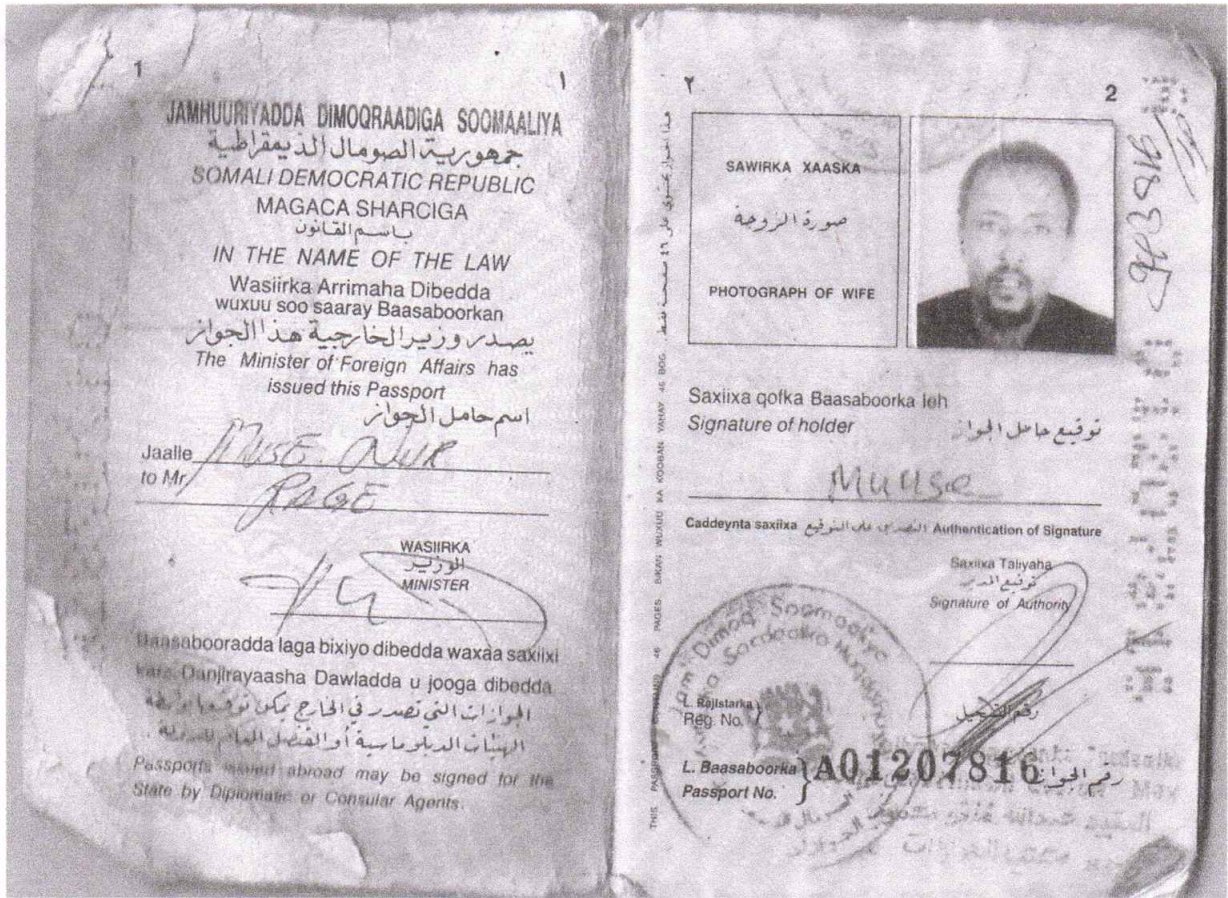 1 ١
JAMHUURIYADDA DIMOQRAADIGA SOOMAALIYA
جمهورية الصومال الديمقراطية
SOMALI DEMOCRATIC REPUBLIC
MAGACA SHARCIGA
باسم القانون
IN THE NAME OF THE LAW
Wasiirka Arrimaha Dibedda
wuxuu soo saaray Baasaboorkan
يصدر وزير الخارجية هذا الجواز
The Minister of Foreign Affairs has
issued this Passport
اسم حامل الجواز
Jaalle MUSE NUR
to Mr RAGE
WASIIRKA
الوزير
MINISTER
Baasabooradda laga bixiyo dibedda waxaa saxiixi
kara Danjirayaasha Dawladda u jooga dibedda
الجوازات التي تصدر في الخارج يمكن توقيعها بواسطة
الهيئات الدبلوماسية أو القنصل العام للدولة .
Passports issued abroad may be signed for the
State by Diplomatic or Consular Agents.
٢ 2
هذا الجواز يحتوي على ٤٦ صفحة فقط
THIS PASSPORT 46 PAGES BUKAN WUXUU KA KOOBAN YAHAY 46 BOG
SAWIRKA XAASKA
صورة الزوجة
PHOTOGRAPH OF WIFE
Saxiixa qofka Baasaboorka leh
Signature of holder توقيع حامل الجواز
Muuse
Caddeynta saxiixa التصديق على التوقيع Authentication of Signature
Saxiixa Taliyaha
توقيع المدير
Signature of Authority
Jam. Dimoq. Soomaaliya
L. Rajistarka
Reg. No. رقم التسجيل
L. Baasaboorka
Passport No. A01207816 رقم الجواز